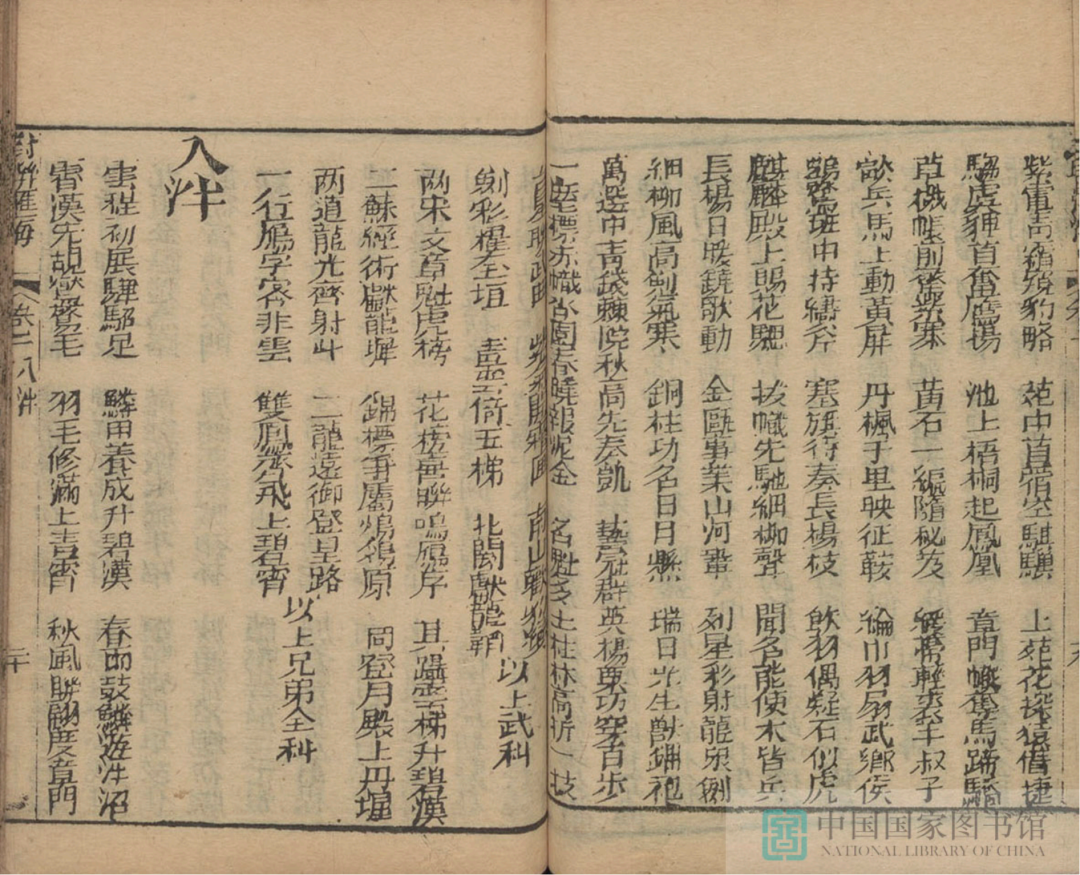 紫電青霜須豹略　苑中苜蓿空騏驥　上苑花探猿借捷
騶虞貍首奮鷹揚　池上梧桐起鳳凰　章門幟奪馬蹄驕
草檄帳前　黃石一編隨秘笈　緩帶輕裘羊叔子
歃兵馬上動黃屏　丹楓千里映征鞍　綸巾羽扇武鄉侯
班中持繡斧　塞旗待奏長楊枝　飲羽偶疑石似虎
麒麟殿上賜花驄　拔幟先馳細柳聲　聞名能使木皆兵
長楊日暖鐃歌動　金甌事業山河鞏　列星彩射龍泉劍
細柳風高劍氣寒　銅柱功名日月懸　瑞日光生獸鋪袍
萬選中青錢棘院秋高先奏凱　藝冠群英楊葉功穿百步
一麾標赤幟杏園春曉報泥金　名魁多士桂林高折一技
南山
劍彩耀全垣　畫雲倚五梯　北闕獻龍韜　以上武科
两宋文章魁虎榜　花榜齊聯鳴鴈序　其躡雲梯升碧漢
二蘇經術獻龍墀　錦標爭屬鶺鴒原　同登月殿上丹墀
两道龍光齊射斗　二龍遠御登皇路
一行鴈字客非雲　雙鳳齊飛上碧霄　以上兄弟仝科
入泮
雲程初展驊騮足　鱗甲養成升碧漢　春雨鼓鱗遊泮沼
霄漢先胡鸑鷟毛　羽毛修滿上青霄　秋風聯翮度章門
卷二　入泮　二十
中国国家图书馆
NATIONAL LIBRARY OF CHINA